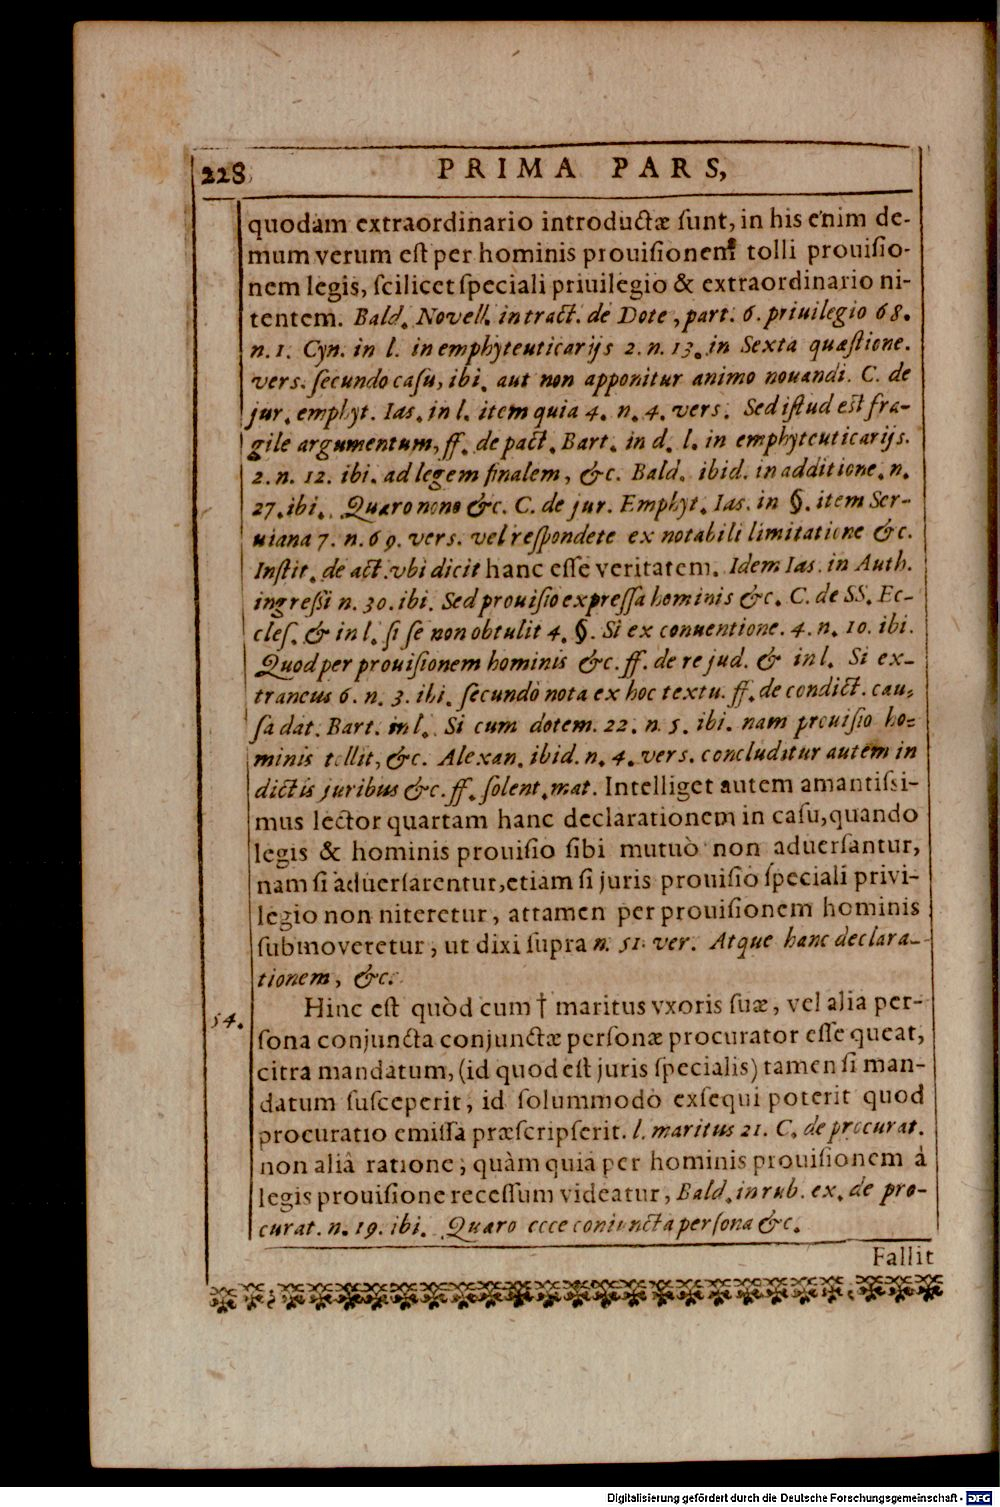 228 PRIMA PARS,
quodam extraordinario introductæ ſunt, in his enim de-
mum verum eſt per hominis prouiſionem tolli prouiſio-
nem legis, ſcilicet ſpeciali priuilegio & extraordinario ni-
tentem. Bald. Novell. in tract. de Dote, part. 6. priuilegio 68.
n. 1. Cyn. in l. in emphyteuticarijs 2. n. 13. in Sexta quæſtione.
vers. ſecundo caſu, ibi. aut non apponitur animo nouandi. C. de
jur. emphyt. Ias. in l. item quia 4. n. 4. vers. Sed iſtud eſt fra-
gile argumentum, ff. de pact. Bart. in d. l. in emphyteuticarijs.
2. n. 12. ibi. ad legem finalem, &c. Bald. ibid. in additione. n.
27. ibi. Quæro nono &c. C. de jur. Emphyt. Ias. in §. item Ser-
uiana 7. n. 69. vers. vel reſpondete ex notabili limitatione &c.
Inſtit. de act. vbi dicit hanc eſſe veritatem. Idem Ias. in Auth.
ingreſſi n. 30. ibi. Sed prouiſio expreſſa hominis &c. C. de SS. Ec-
cleſ. & in l. ſi ſe non obtulit 4. §. Si ex conuentione. 4. n. 10. ibi.
Quod per prouiſionem hominis &c. ff. de re jud. & in l. Si ex-
traneus 6. n. 3. ibi. ſecundò nota ex hoc textu. ff. de condict. cau-
ſa dat. Bart. in l. Si cum dotem. 22. n. 5. ibi. nam prouiſio ho-
minis tollit, &c. Alexan. ibid. n. 4. vers. concluditur autem in
dictis juribus &c. ff. ſolent. mat. Intelliget autem amantiſsi-
mus lector quartam hanc declarationem in caſu, quando
legis & hominis prouiſio ſibi mutuò non aduerſantur,
nam ſi aduerſarentur, etiam ſi juris prouiſio ſpeciali privi-
legio non niteretur, attamen per prouiſionem hominis
ſubmoveretur, ut dixi ſupra n. 51. ver. Atque hanc declara-
tionem, &c.
54. Hinc eſt quòd cum † maritus vxoris ſuæ, vel alia per-
ſona conjuncta conjunctæ perſonæ procurator eſſe queat,
citra mandatum, (id quod eſt juris ſpecialis) tamen ſi man-
datum ſuſceperit, id ſolummodò exſequi poterit quod
procuratio emiſſa præſcripſerit. l. maritus 21. C. de procurat.
non aliâ ratione, quàm quia per hominis prouiſionem à
legis prouiſione receſſum videatur, Bald. in rub. ex. de pro-
curat. n. 19. ibi. Quæro ecce coniuncta perſona &c.
Fallit
Digitalisierung gefördert durch die Deutsche Forschungsgemeinschaft - DFG